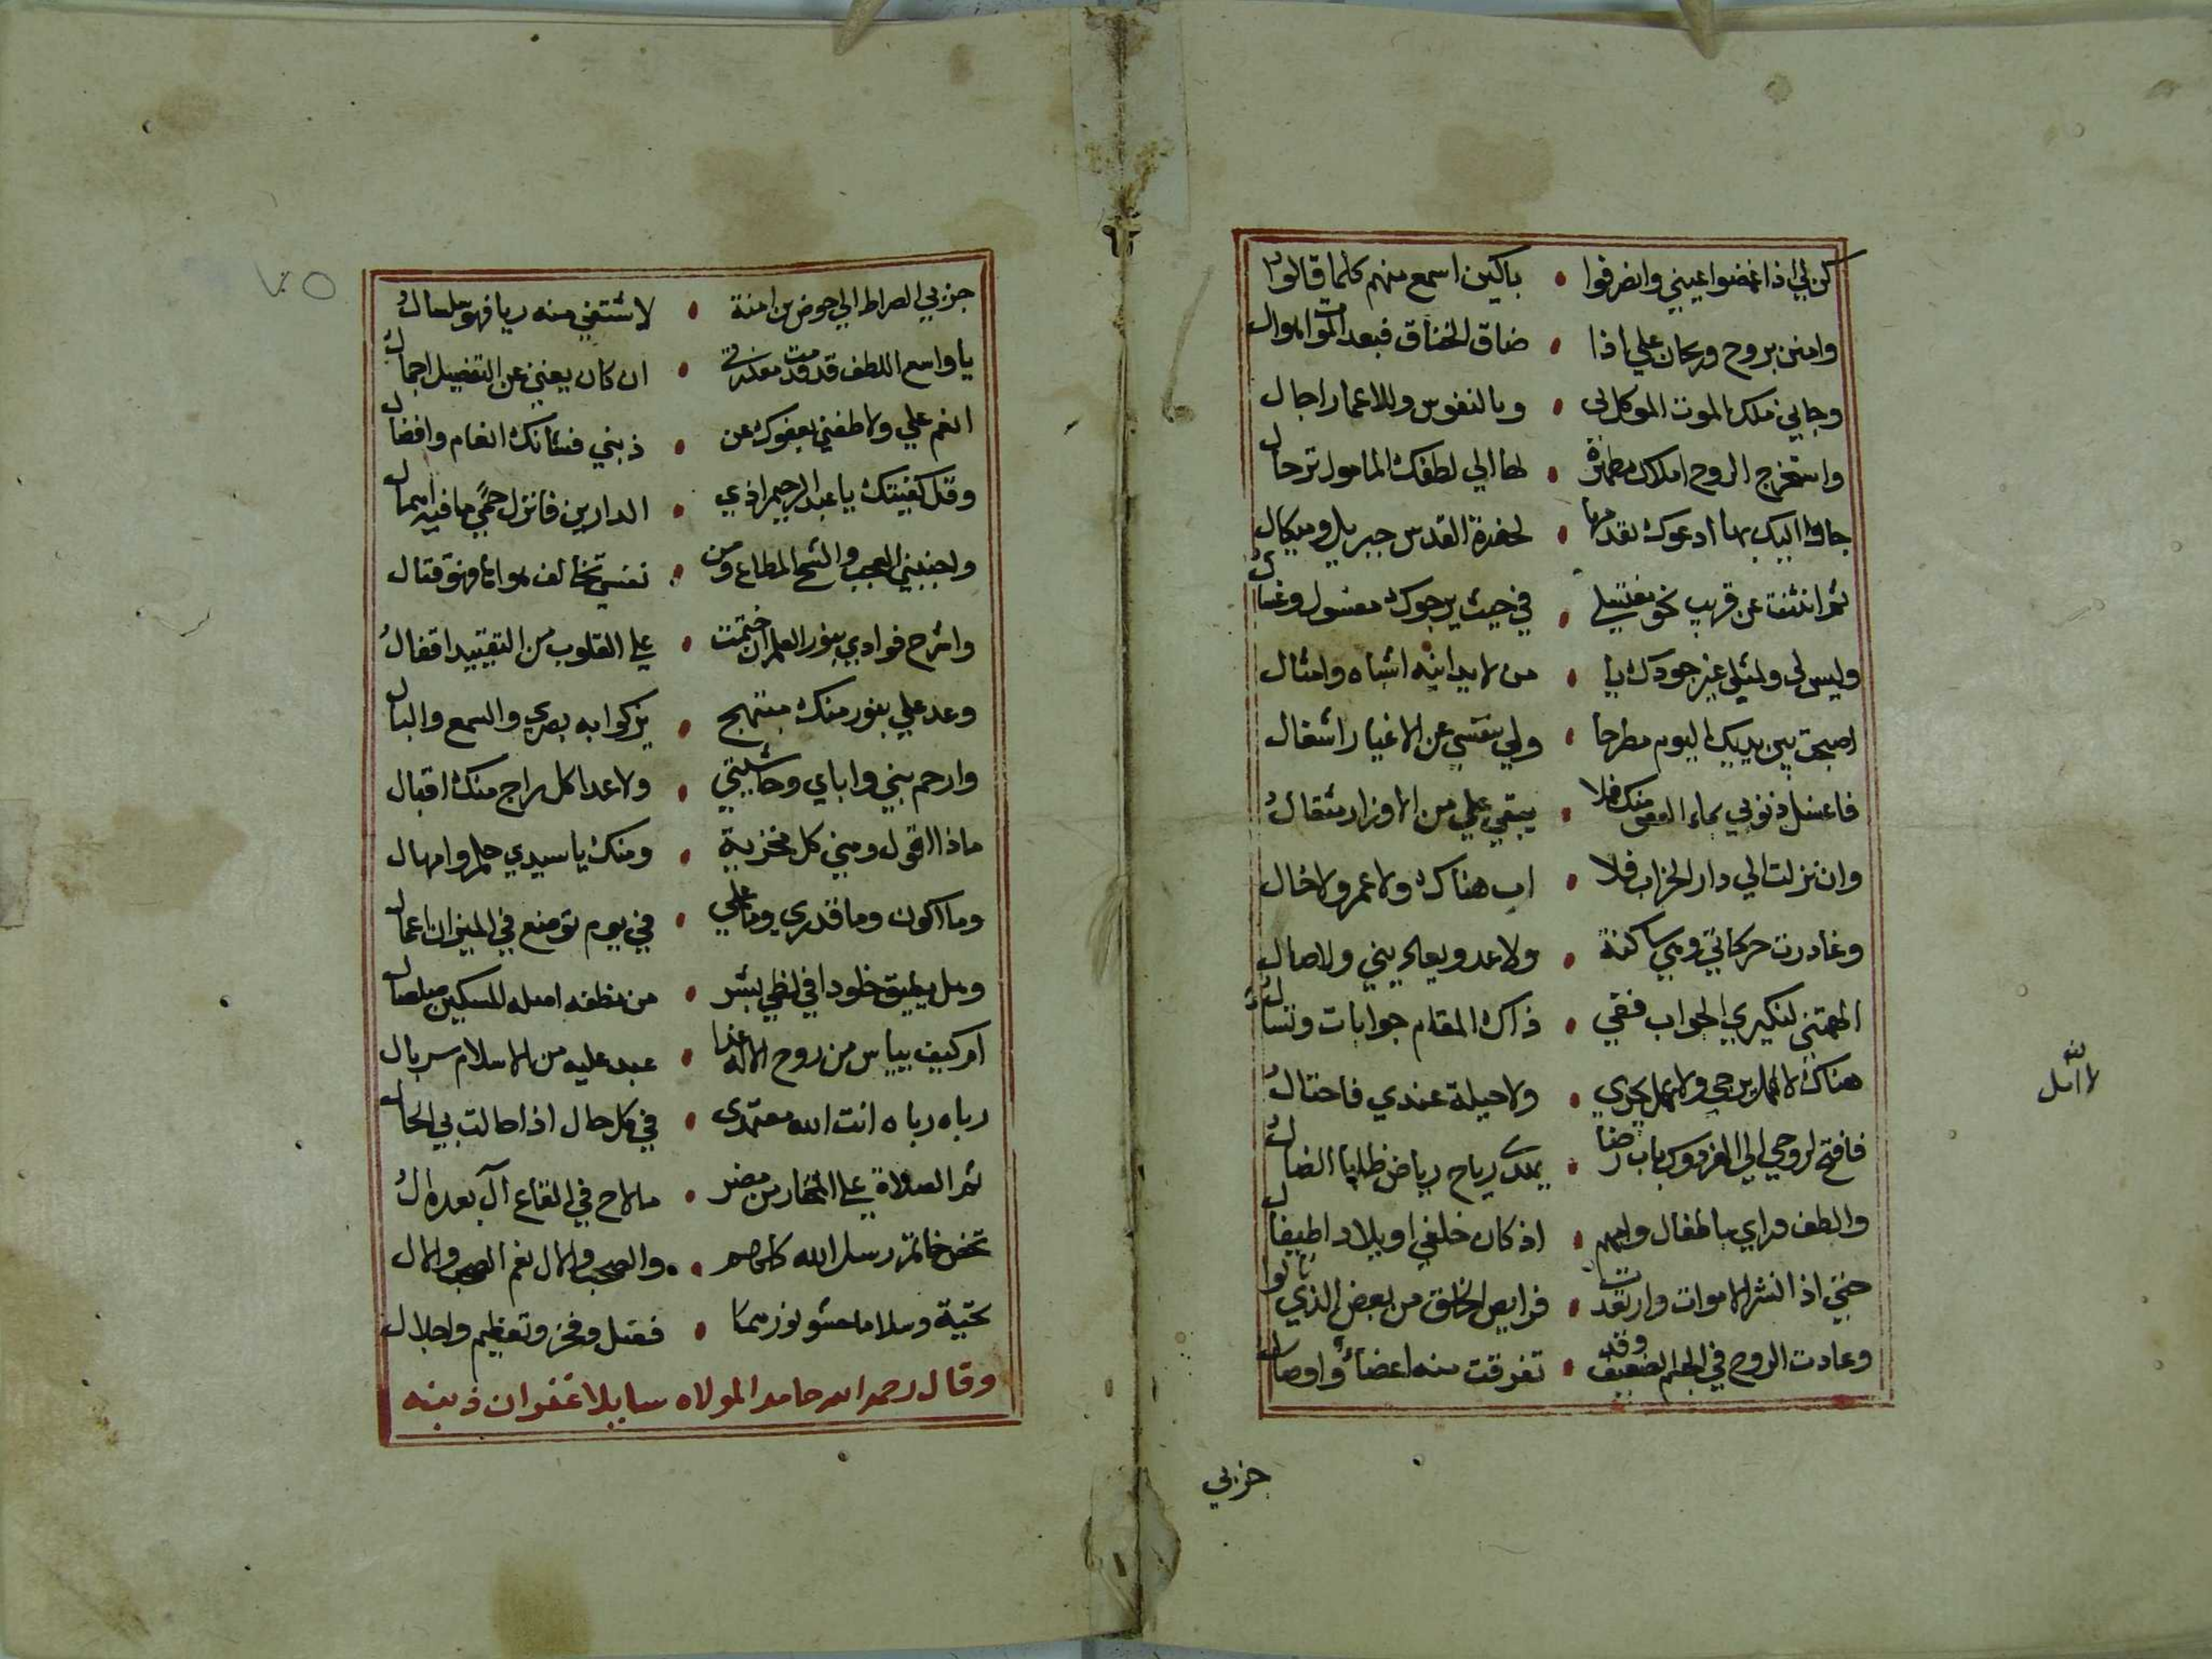 كن لي اذا غمضوا عيني وانصرفوا • باكين اسمع منهم كلما قالوا
وامنن بروح وريحان علي اذا • ضاق الخناق فبعد الموت اهوال
وجاني ملك الموت الموكل لي • وبالنفوس وللاعمار اجال
واستخرج الروح املاك مطهرة • لها الي لطفك المامول ترحال
جاوا اليك بها ادعوك تقدمها • لحضرة القدس جبريل وميكال
ثم انثنت عن قريب نحو مغتسلي • في حيث يرجوك مغسول وغسال
وليس لي ولمثلي غير جودك يا • من لا يدانيه اشباه وامثال
اصبحت بين يديك اليوم مطرحا • ولي بنفسي عن الاغيار اشغال
فاغسل ذنوبي بماء العفو منك فلا • يبقي علي من الاوزار مثقال
وان نزلت الي دار الخراب فلا • اب هناك ولا عم ولا خال
وغادرت حركاتي وهي ساكنة • ولا عدو يعاديني ولا مال
الهمتني لنكيري الجواب ففي • ذاك المقام جوابات وتسال
هناك لا امل يرجي ولا عمل يجدي • ولا حيلة عندي فاحتال
فافتح لروحي الي الفردوس باب رضا • رياح رياض ظلها الضال
والطف وراي باطفال وامهم • اذ كان خلفي اويلاد اطيفال
حتي اذا نشر الاموات وارتعدت • فرايص الخلق من بعض الذي نالوا
وعادت الروح في الجسم الضعيف وقد • تفرقت منه اعضاء واوصال
لا امل
جز بي
جز بي الصراط الي حوض بن امنة • لاشتفي منه ريا فهو سلسال
يا واسع اللطف قد قدمت معذرتي • ان كان يغني عن التفصيل اجمال
انعم علي ولاطفني بعفوك عن • ذنبي فشانك انعام وافضال
وقل كفيتك يا عبد الرحيم اذي • الدارين فانزل حمي ما فيه اهمال
واجنبني العجب والشح المطاع ومن • نفسي تخالف هواها فهو قتال
واشرح فوادي بنور العلم ان ختمت • علي القلوب من التقييد اقفال
وعد علي بنور منك مبتهج • يزكوا به بصري والسمع والبال
وارحم بني واباي وحاشيتي • ولا عدا كل راج منك اقبال
ماذا اقول ومني كل مخزية • ومنك يا سيدي حلم وامهال
وما اكون وما قدري وما عملي • في يوم توضع في الميزان اعمال
وهل يطيق خلودا في لظي بشر • من نطفة اصله المسكين صلصال
ام كيف يياس من روح الاله غدا • عبد عليه من الاسلام سربال
رباه رباه انت الله معتمدي • في كل حال اذا حالت بي الحال
ثم الصلاة علي المختار من مضر • ما لاح في القاع آل بعده ال
تخص خاتم رسل الله كلهم • والصحب والال نعم الصحب والال
تحية وسلاما • فضل وفخر وتعظيم واجلال
وقال رحمه الله حامدا لمولاه سايلا غفران ذنبه